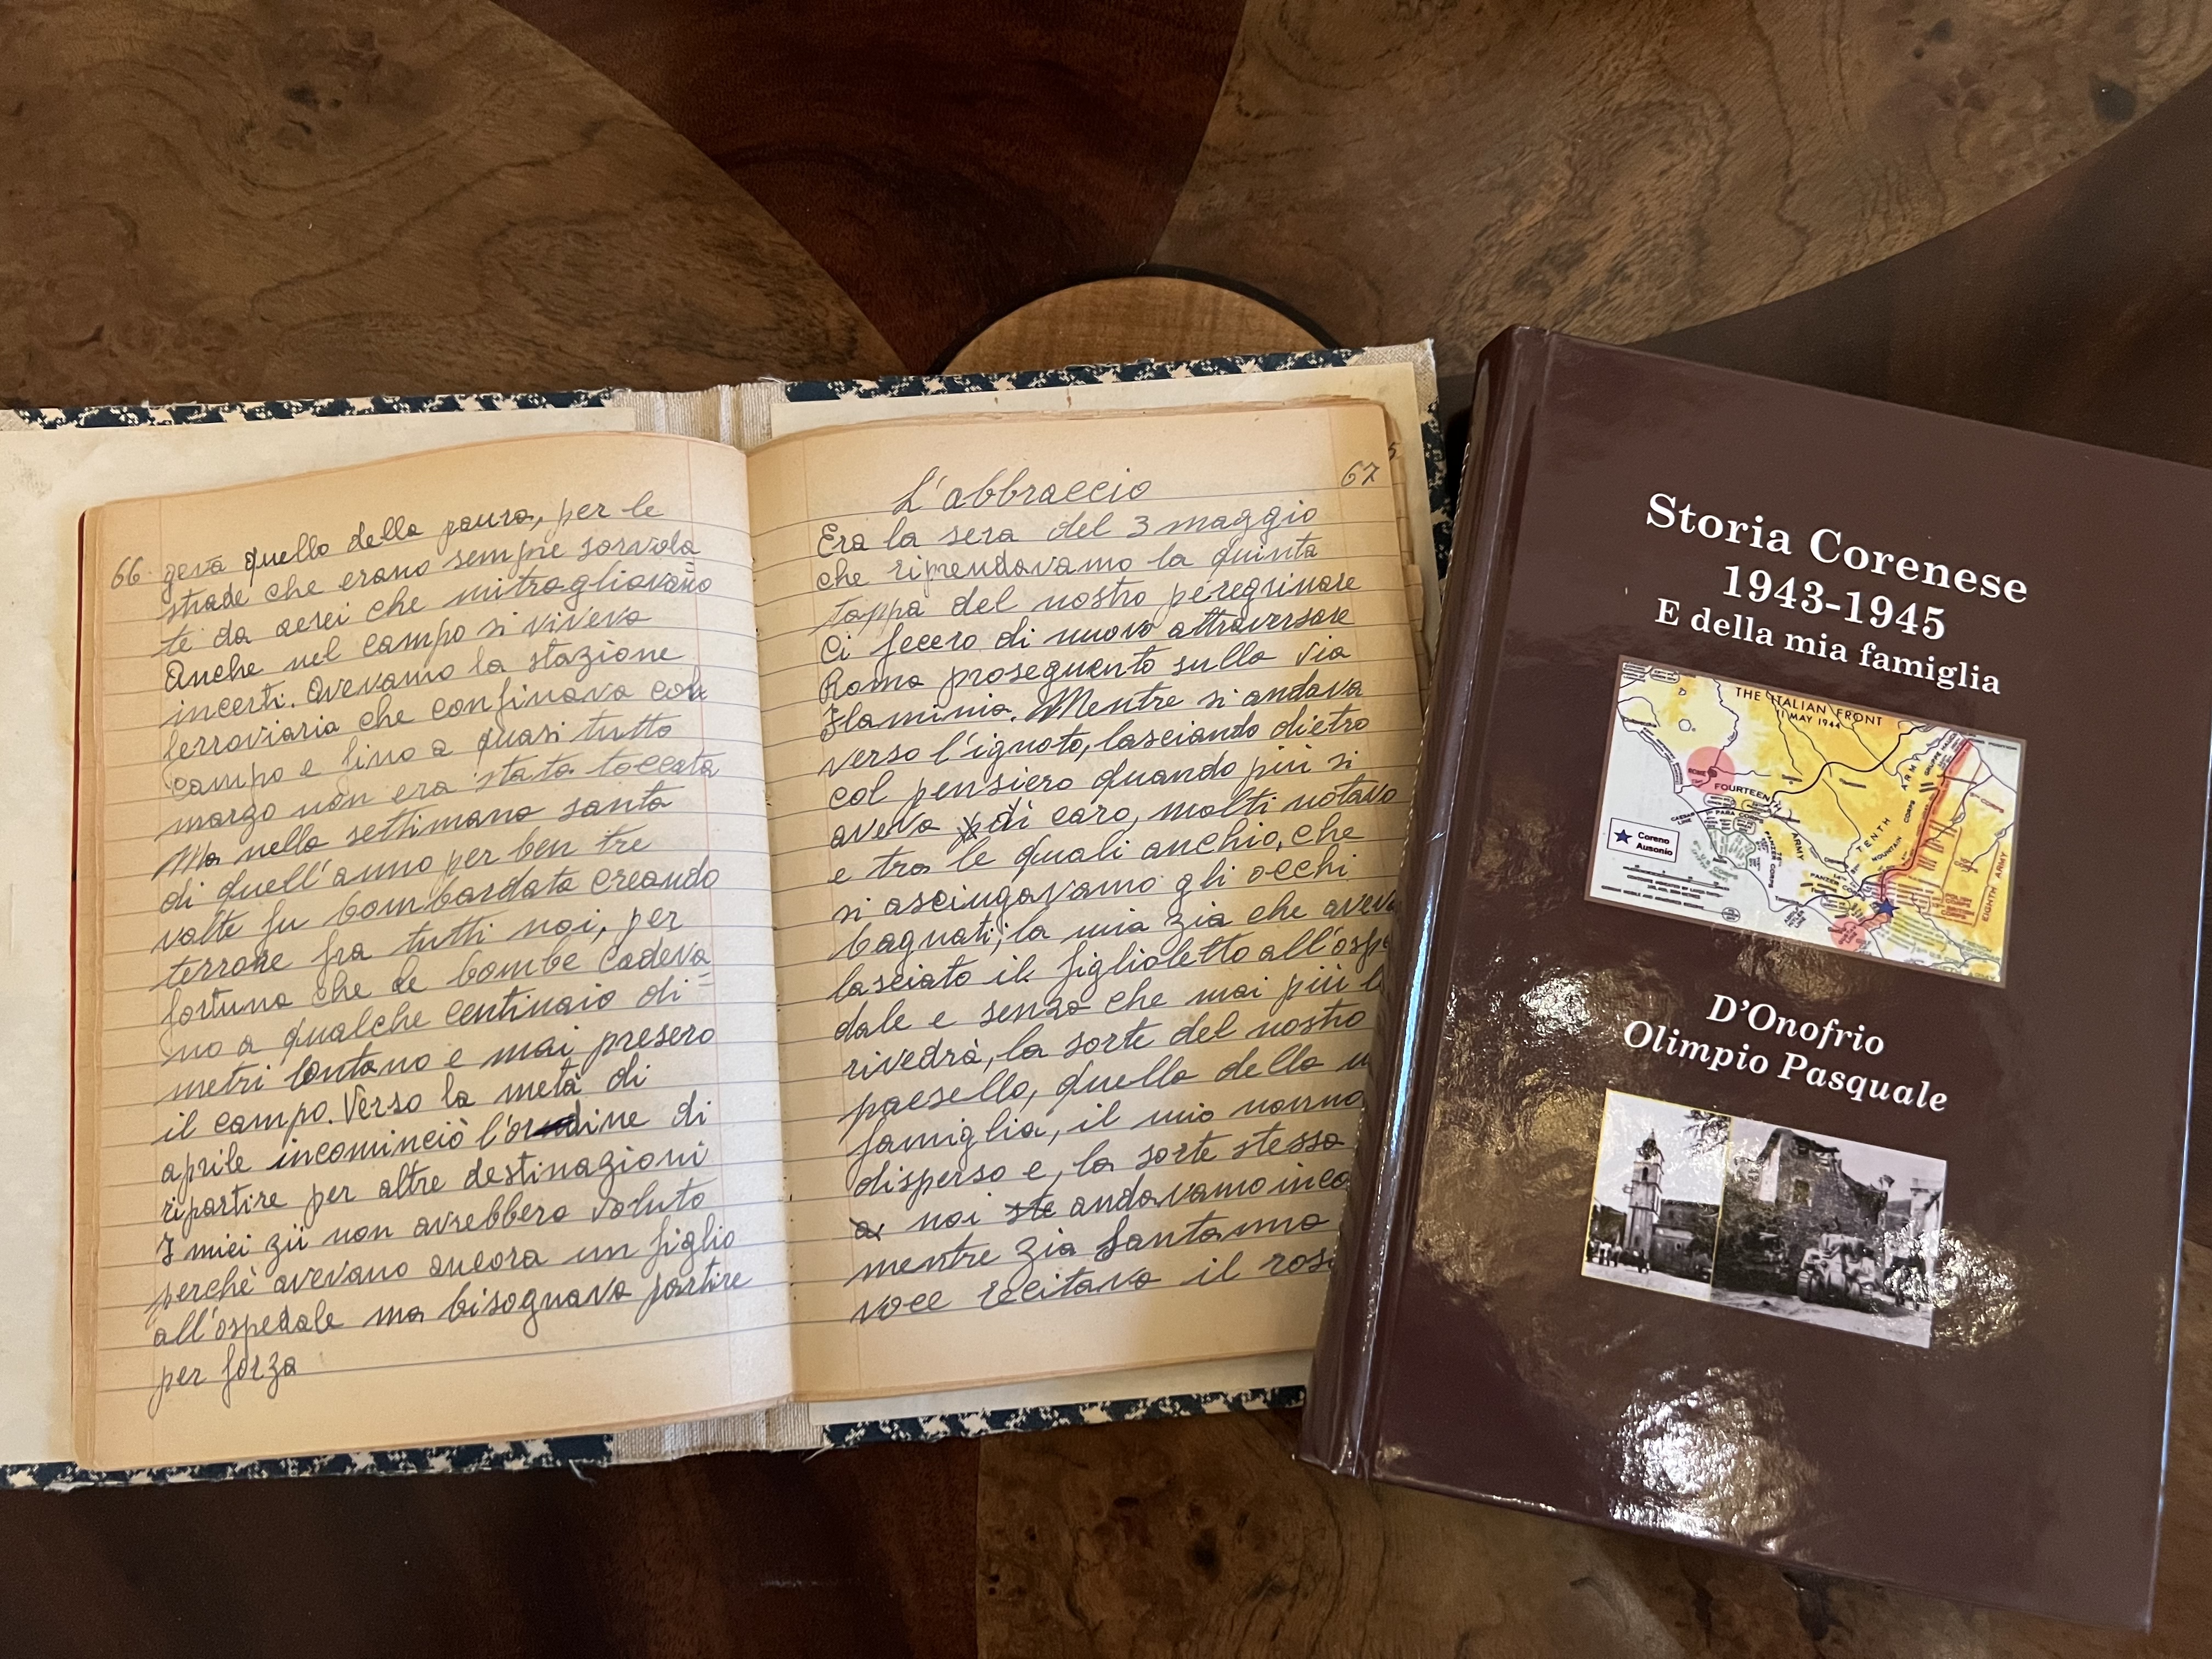 66
gerà quello della paura, per le
strade che erano sempre sorvola
te da aerei che mitragliavano
Anche nel campo si viveva
incerti. Avevamo la stazione
ferroviaria che confinava col
campo e fino a quasi tutto
marzo non era stata toccata
Ma nella settimana santa
di quell'anno per ben tre
volte fu bombardata creando
terrore fra tutti noi, per
fortuna che le bombe cadeva=
no a qualche centinaio di
metri lontano e mai presero
il campo. Verso la metà di
aprile incominciò l'ordine di
ripartire per altre destinazioni
I miei zii non avrebbero voluto
perchè avevano ancora un figlio
all'ospedale ma bisognava partire
per forza
67
L'abbraccio
Era la sera del 3 maggio
che riprendavamo la quinta
tappa del nostro peregrinare
Ci fecero di nuovo attraversare
Roma proseguento sulla via
Flaminia. Mentre si andava
verso l'ignoto, lasciando dietro
col pensiero quando più si
aveva di caro, molti notavo
e tra le quali anchio, che
si asciugavamo gli occhi
bagnati; la mia zia che avev
lasciato il figlioletto all'osp
dale e senza che mai più l
rivedrà, la sorte del nostro
paesello, quella della
famiglia, il mio nonno
disperso e, la sorte stessa
a noi ste andavamo inco
mentre zia Santa
voce recitava il ros
Storia Corenese
1943-1945
E della mia famiglia
THE ITALIAN FRONT
11 MAY 1944
ROME
FOURTEENTH
ARMY
TENTH
ARMY
CAESAR
LINE
PARA CORPS
PANZER CORPS
MOUNTAIN
CORPS
EIGHTH ARMY
Coreno
Ausonio
D'Onofrio
Olimpio Pasquale